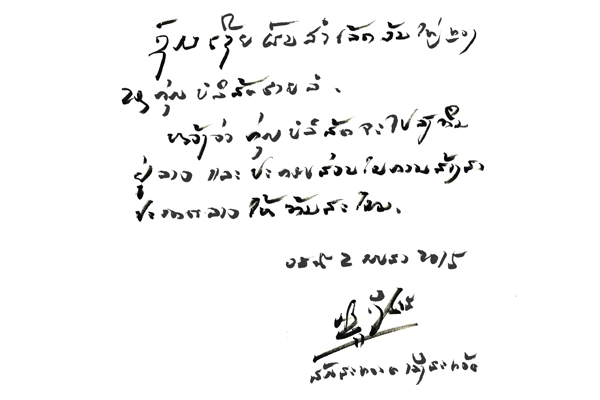 ຜົນສຳເລັດອັນໃຫຍ່
ຂອງ ກຸ່ມ ບໍລິສັດ
ຫວັງວ່າ ກຸ່ມ ບໍລິສັດ ຈະໄປລົງທຶນ
ຢູ່ລາວ ແລະ ປະກອບສ່ວນໃນການສ້າງສາ
ປະເທດລາວ ໃຫ້ ທັນສະໄໝ.
ວັນທີ 2 ເມສາ 2015
ສົມສະຫວາດ ເລັ່ງສະຫວັດ